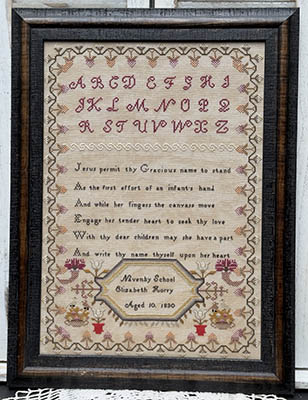 A B C D E F G H I
J K L M N O P Q
R S T U V W X Z
Jesus permit thy Gracious name to stand
As the first effort of an infants hand
And while her fingers the canvass move
Engage her tender heart to seek thy love
With thy dear children may she have a part
And write thy name thyself upon her heart
Navenby School
Elizabeth Korry
Aged 10, 1830